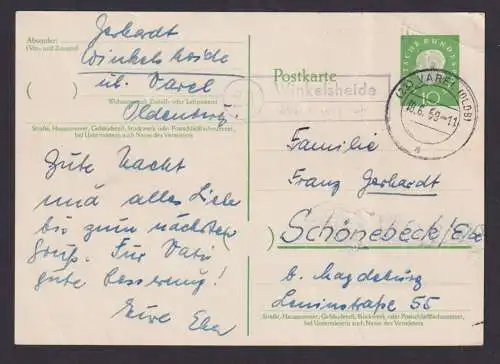 Absender:
Gerhardt
Winkelsheide
üb. Varel
Oldenburg
Wohnort, auch Zustell- oder Leitpostamt
Straße, Hausnummer, Gebäudeteil, Stockwerk oder Postschließfachnummer,
bei Untermietern auch Name des Vermieters
Gute Nacht
und alles Liebe
bis zum nächsten
Gruß. Für Vati
gute Besserung!
Eure
Postkarte
Winkelsheide
DEUTSCHE BUNDESPOST
10
(23) VAREL (OLDB)
-11
a
Familie
Franz Gerhardt
Schönebeck/Elbe
b. Magdeburg
Leninstraße 55
Straße, Hausnummer, Gebäudeteil, Stockwerk oder Postschließfachnummer,
bei Untermietern auch Name des Vermieters